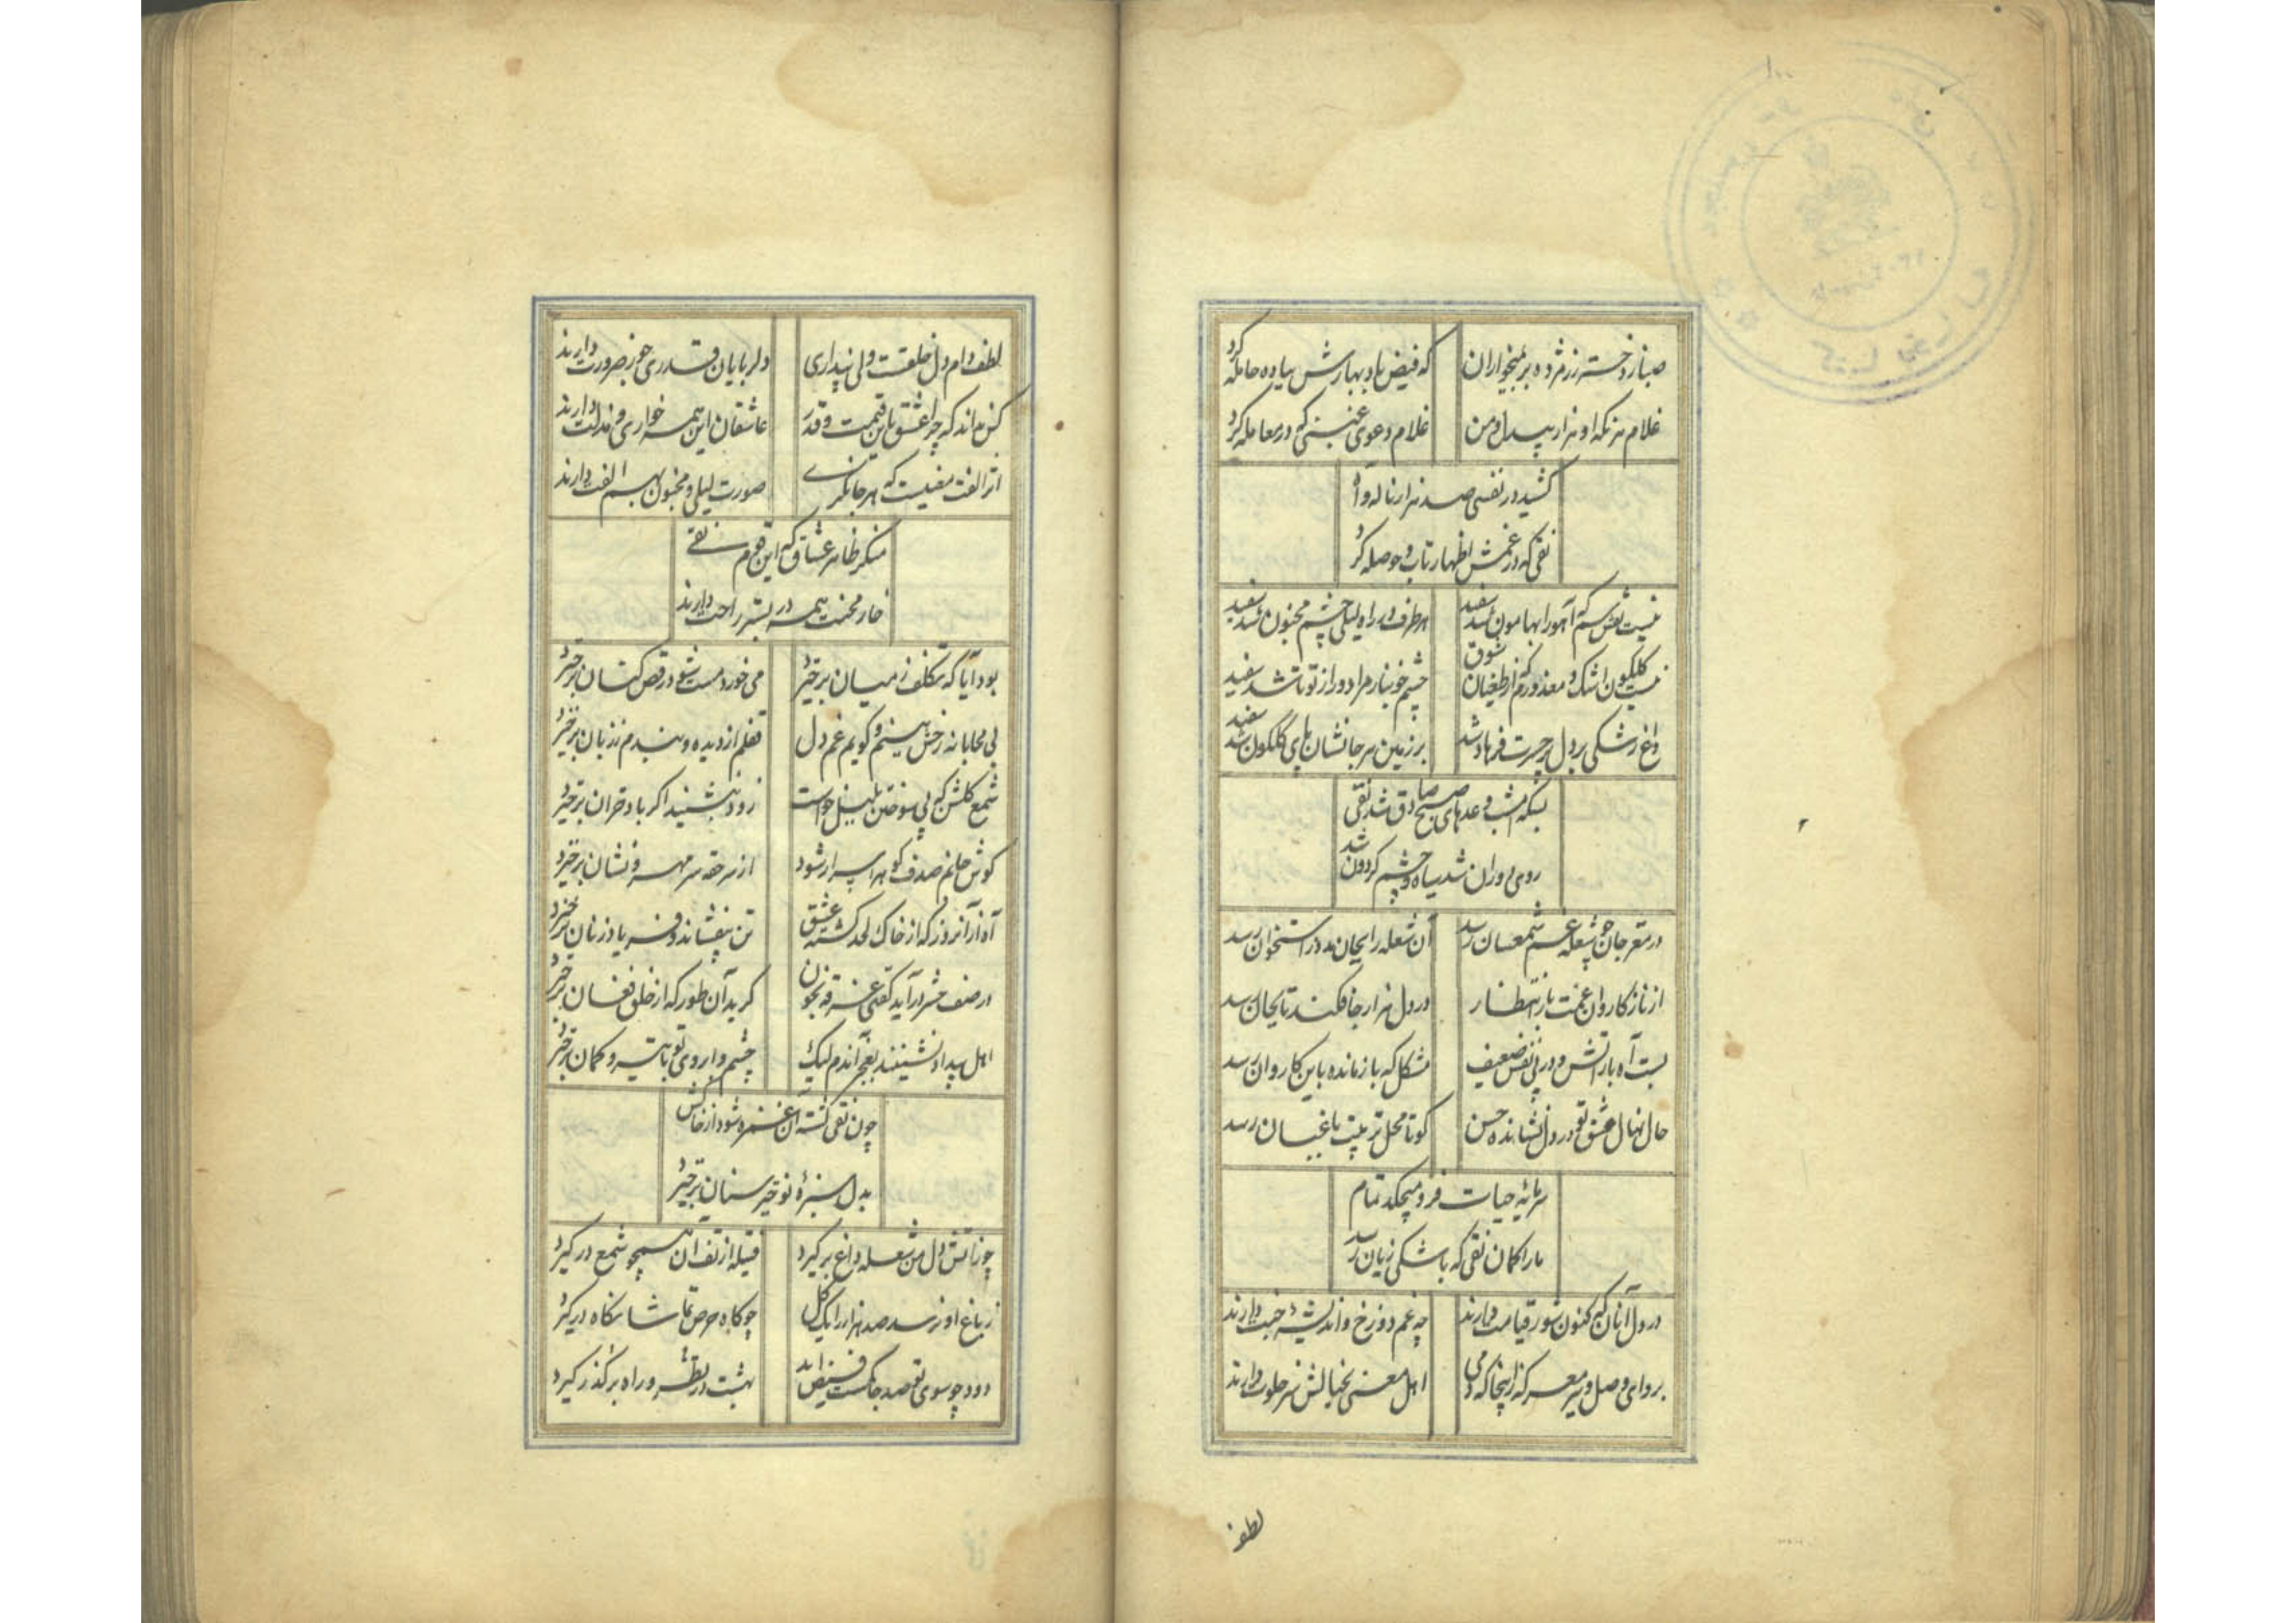 صبا ز دخت رز مژده بر بمیخواران که فیض باد بهارش پیاده حامله کرد
غلام هر نگه او هزار بیدل و من غلام دعوی عجبی که در معامله کرد
کشید در نفسی صد هزار ناله و آه
نقی که در غمش اظهار تاب و حوصله کرد
نیست نقش سم آهو را بهامون شد سفید هر طرف در راه لیلی چشم مجنون شد سفید
نیست گلگون اشک و معذورم که از طغیان شوق چشم خونبار مرا دور از تو تا شد سفید
داغ رشکی بر دل پر حسرت فرهاد شد بر زمین هر جا نشان پای گلگون شد سفید
بسکه امشب وعدهای صبح صادق شد نقی
روی دوران شد سیاه و چشم گردون شد
در مغز جان چو شعله غم شمعسان رسد آن شعله را بجان مدد از استخوان رسد
از ناز کاروان غمت بار انتظار در دل هزار جا فکند تا بجان رسد
بست آه بار آتش و در پی نفس ضعیف مشکل که باز مانده باین کاروان رسد
حال نهال عشق تو در دل نشانده حسن کو تا محل تربیت باغبان رسد
سرمایه حیات فرو میچکد تمام
ما را گمان نقی که باشکی زیان رسد
در دل آنان که کنون شور قیامت دارند چه غم دوزخ و اندیشه جنت دارند
بر وای وصل و سیر معرکه ز اینجا که دمی اهل معنی بخیالش سر خلوت دارند
لطف
لطف دام دل خلقست ولی پنداری دلربایان قدری جور ضرورت دارند
کس نداند که چرا عشق باین قیمت و قدر عاشقان این همه خواری و مذلت دارند
اثر الفت معنیست که هر جا نگری صورت لیلی و مجنون بهم الفت دارند
منگر ظاهر عشاق که این قوم نقی
خار محنت همه در بستر راحت دارند
بود آیا که تکلف ز میان برخیزد می خورد مست شود رقص کنان برخیزد
بی محابا نه رخش بینم و گویم غم دل قفلم از دیده و بندم ز زبان برخیزد
شمع گلشن که پی سوختن بلبل خواست زود بنشیند اگر باد خزان برخیزد
گوش جانم صدف گوهر اسرار شود از سر حقه سر مهر و نشان برخیزد
آه از آنروز که از خاک لحد کشته عشق تن بیفشاند و فریاد زنان برخیزد
در صف حشر در آید کفنی غرقه بخون گرید آن طور که از خلق فغان برخیزد
اهل بیداد نشینند بعجز آندم لیک چشم و ابروی تو با تیر و کمان برخیزد
چون نقی کشته آن غمزه شود از خاکش
بدل سبزه نو خیز سنان برخیزد
چو ز آتش دل من شعله داغ برگیرد فتیله از تف آن همچو شمع در گیرد
ز باغ او نرسد صد هزار را یک گل چو گاه حرص تماشا نگاه در گیرد
دود چو سوی تو صد جا نگه ست فیض آید بهشت در نظر و راه بر گذر گیرد